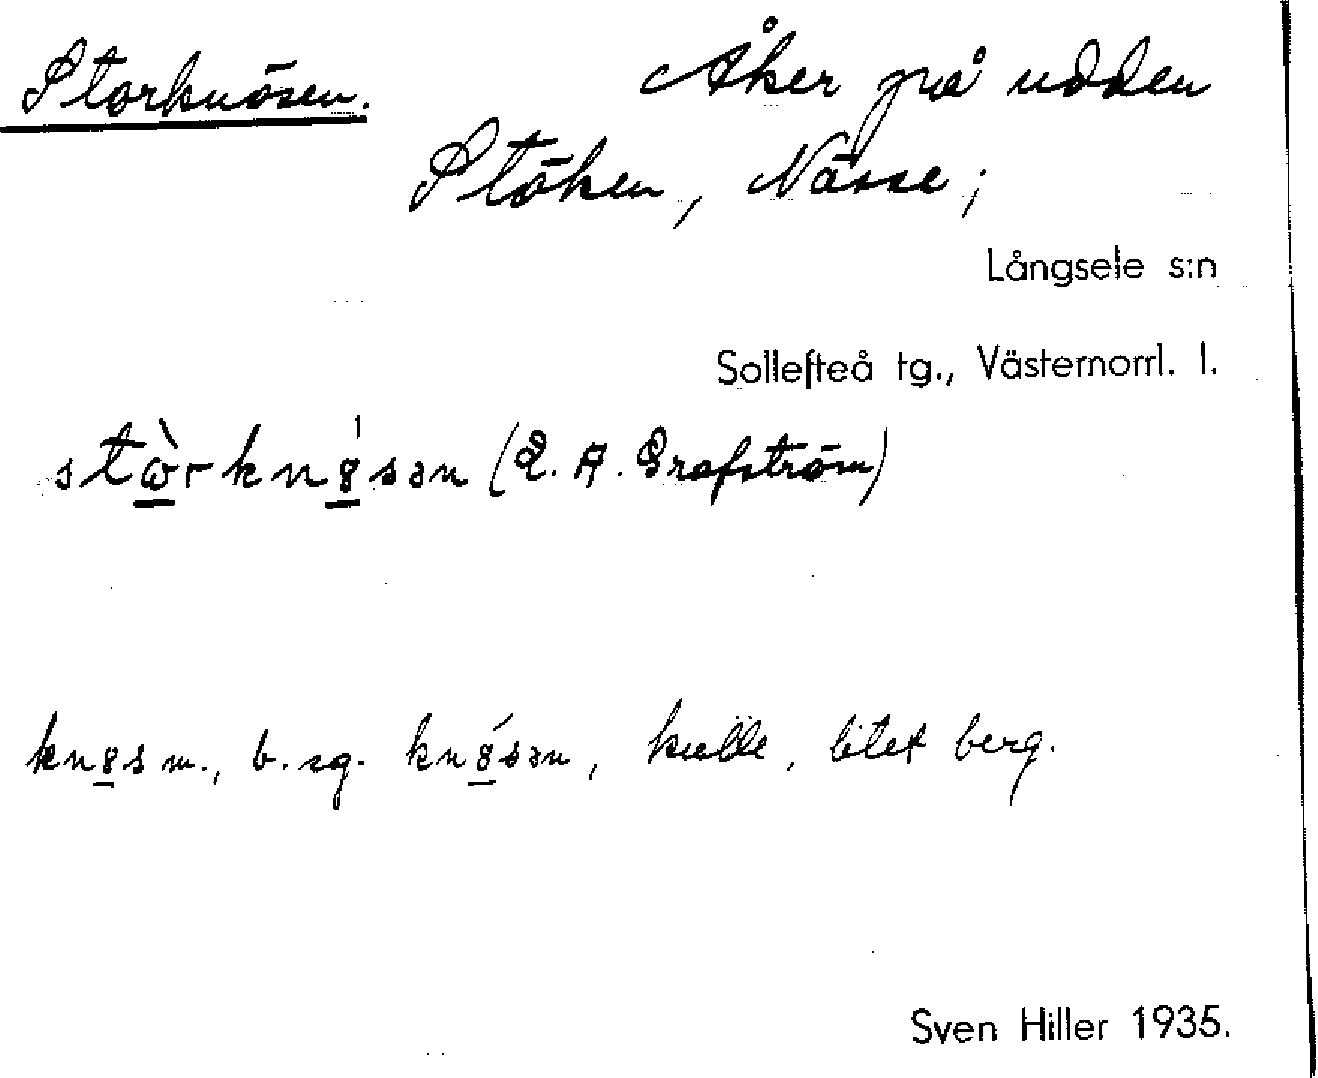 Storknösen. Åker på udden
Stöken, Nässe;
Långsele s:n
Sollefteå tg., Västernorrl. l.
stὼ̲rkn8̲́sən (E. A. Grafström)
kn8̲s m., b. sg. kn8̲́sən, kulle, litet berg.
Sven Hiller 1935.